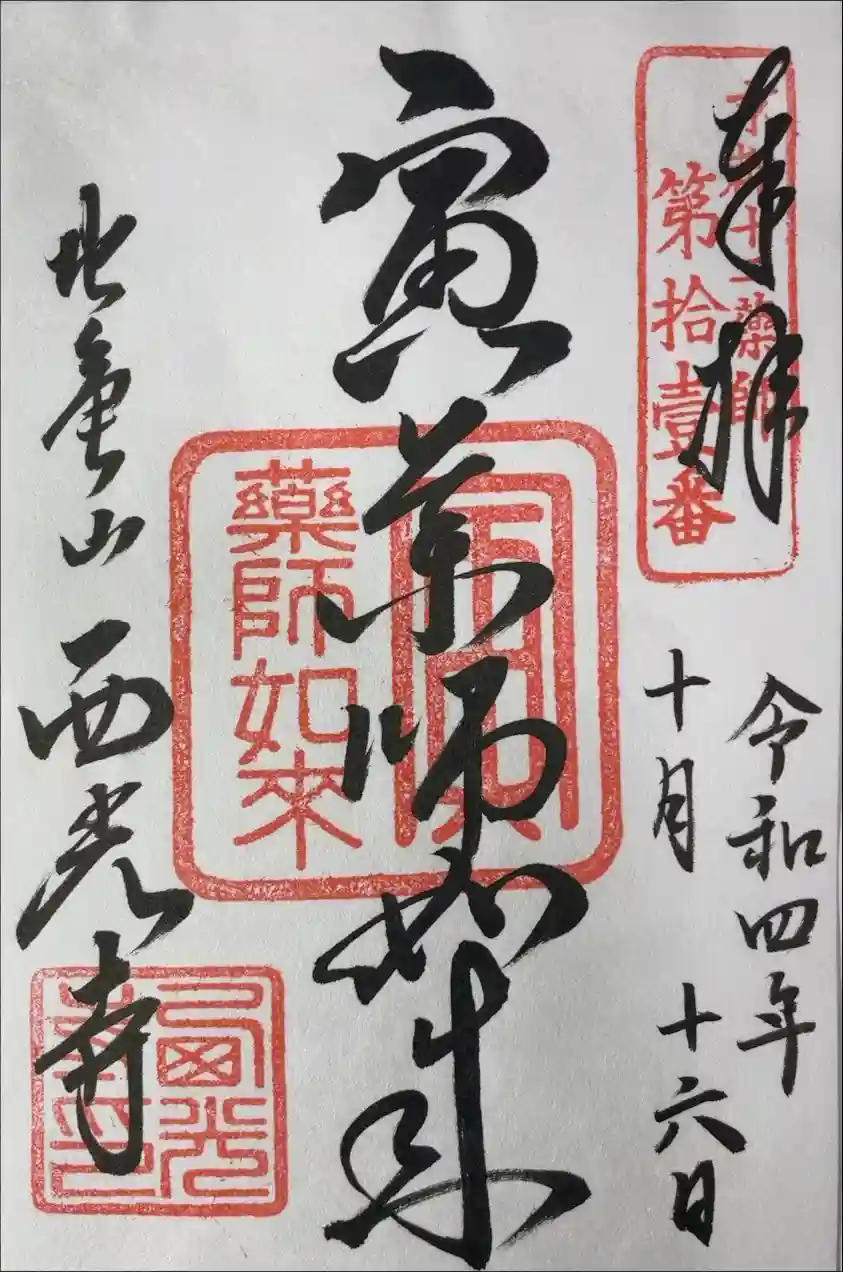 奉拝
京都十二藥師
第拾壹番
令和四年
十月 十六日
寅薬師如来
寅
藥師如來
北亀山 西光寺
西光
寺印